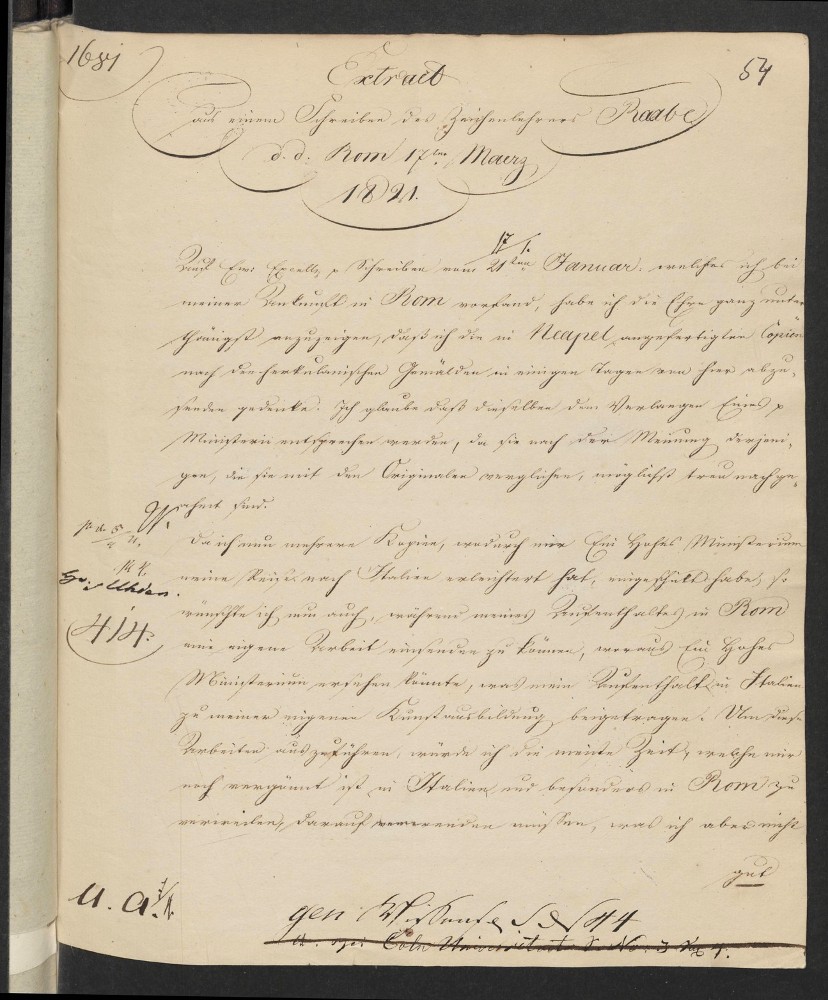 1681
54
Extract
aus einem Schreiben des Zeichenlehrers Raabe
d. d. Rom 17ten Maerz
1821.
Auf Ew. Excellz p Schreiben vom 21ten Januar, welches ich bei
meiner Ankunft in Rom vorfand, habe ich die Ehre ganz unter
thänigst anzuzeigen, daß ich die in Neapel angefertigten Copien
nach den herkulanischen Gemälden in einigen Tagen von hier abzu-
senden gedenke. Ich glaube daß dieselben dem Verlangen Eines p
Ministerii entsprechen werden, da sie nach der Meinung derjeni-
gen, die sie mit den Originalen verglichen, möglichst treu nachge-
ahmt sind.
Da ich nun mehrere Kopien, wodurch mir Ein Hohes Ministerium
meine Reise nach Italien erleichtert hat, eingeschickt habe, so
wünschte ich nun auch, während meines Aufenthaltes in Rom
eine eigene Arbeit einsenden zu können, woraus Ein Hohes
Ministerium ersehen könnte, was mein Aufenthalt in Italien
zu meiner eigenen Kunstausbildung beigetragen. Um diese
Arbeiten auszuführen, würde ich die meiste Zeit, welche mir
noch vergönnt ist in Italien und besonders in Rom zu
verweilen, darauf verwenden müssen, was ich aber nicht
gut
Uhden.
414.
U. a.
gen:
Coln Universitaet No. 3